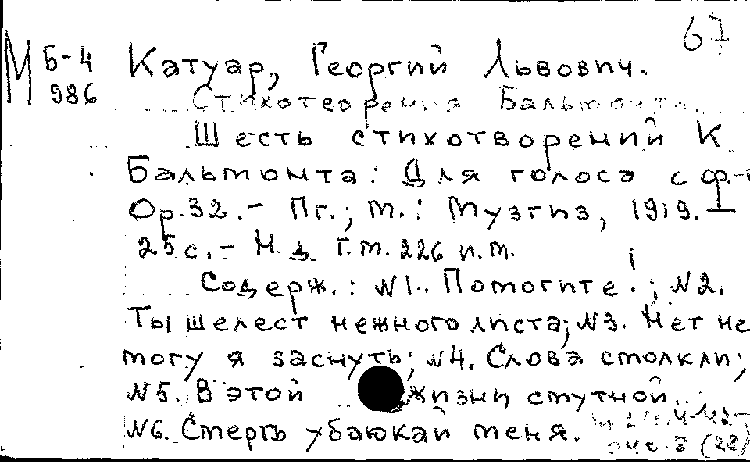 67
М Б-4 Катуар, Георгий Львович.
986
Стихотворения Бальмонта.
Шесть стихотворений К.
Бальмонта: Для голоса с ф-
Ор.32.- Пг.; М.: Музгиз, 1919.-
25 с.- Н.д. Г.М. 226 И.М.
Содерж.: №1. Помогите!; №2.
Ты шелест нежного листа; №3. Нет не
могу я заснуть; №4. Слова смолкли;
№5. В этой жизни смутной.
№6. Смерть убаюкай меня.
(22)